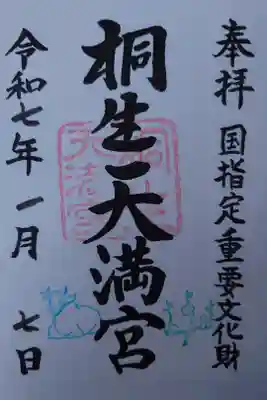 奉拝 国指定重要文化財
桐生天満宮
令和七年一月七日